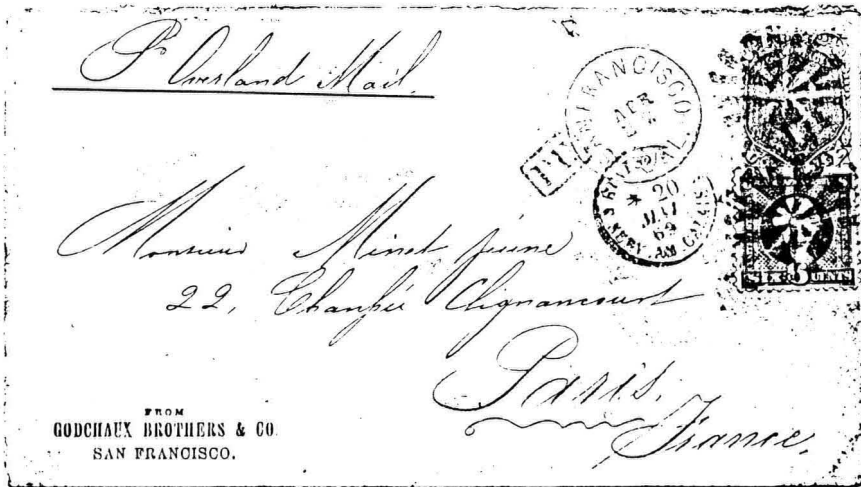 Pr Overland Mail.
SAN FRANCISCO CAL.
APR
20
MAI
69
SERV. AM. CALAIS
SIX CENTS
Monsieur Minet jeune
22, Chaussée Clignancourt
Paris.
France.
FROM
GODCHAUX BROTHERS & CO.
SAN FRANCISCO.